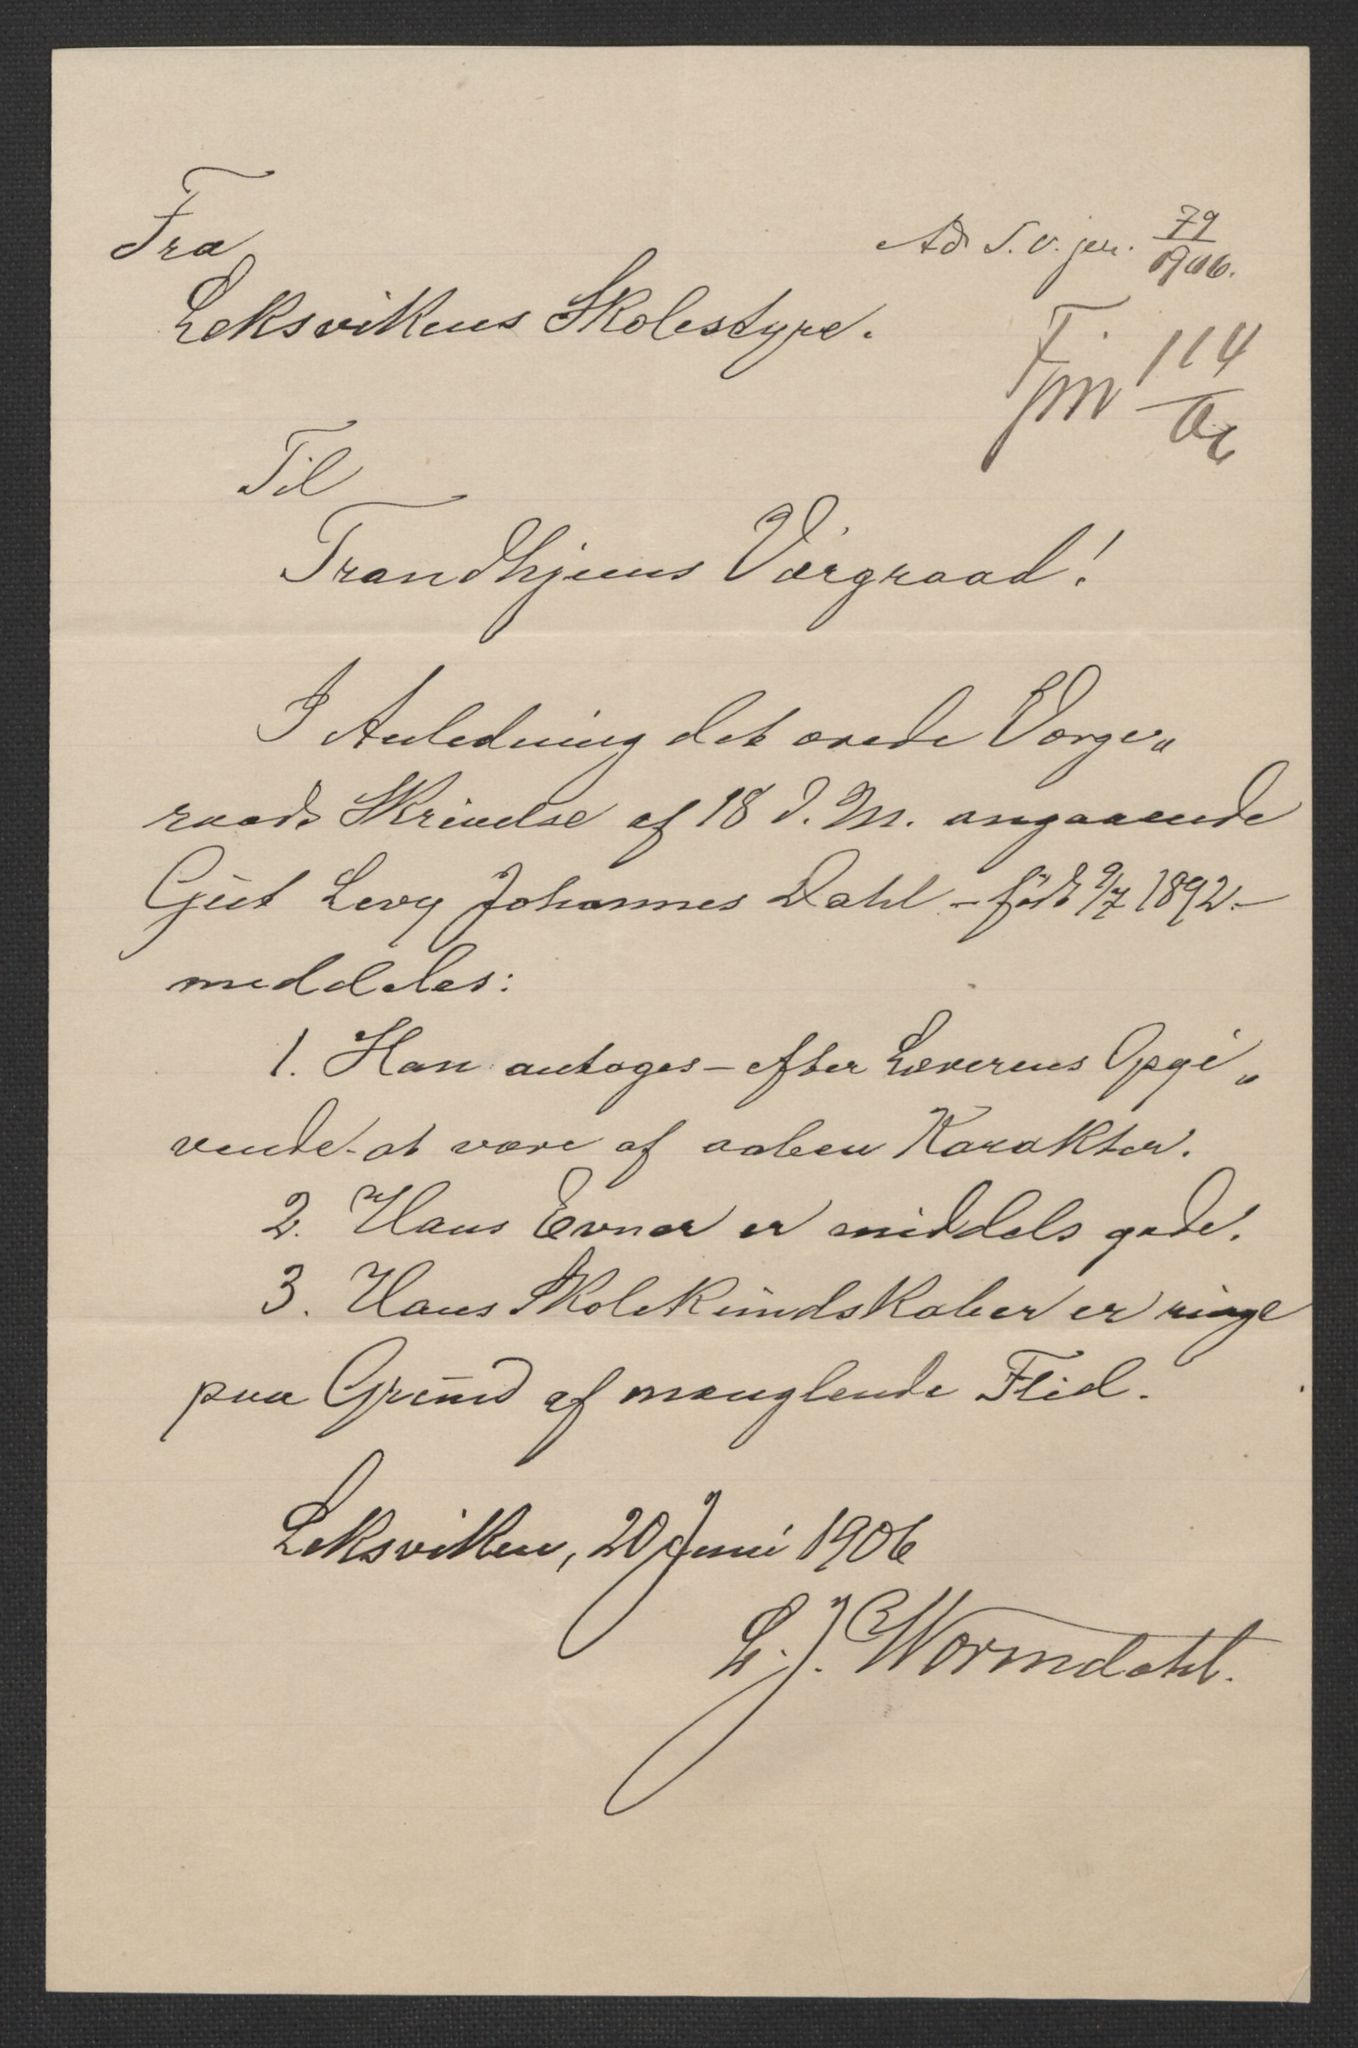 Fra
Leksvikens Skolestyre.
Ad S. v. jr. 79/1906.
114/06
Til
Trondhjems Værgraad!
I Anledning det ærede Værge„
raads Skrivelse af 18 d. M. angaaende
Gut Levy Johannes Dahl – född 9/7 1892 –
meddeles:
1. Han antages – efter Lærerens Opgi„
vende – at være af aaben Karakter.
2. Hans Evner er middels gode.
3. Hans Skolekundskaber er ringe
paa Grund af manglende Flid.
Leksviken, 20 Juni 1906
L. J. Wormdahl.